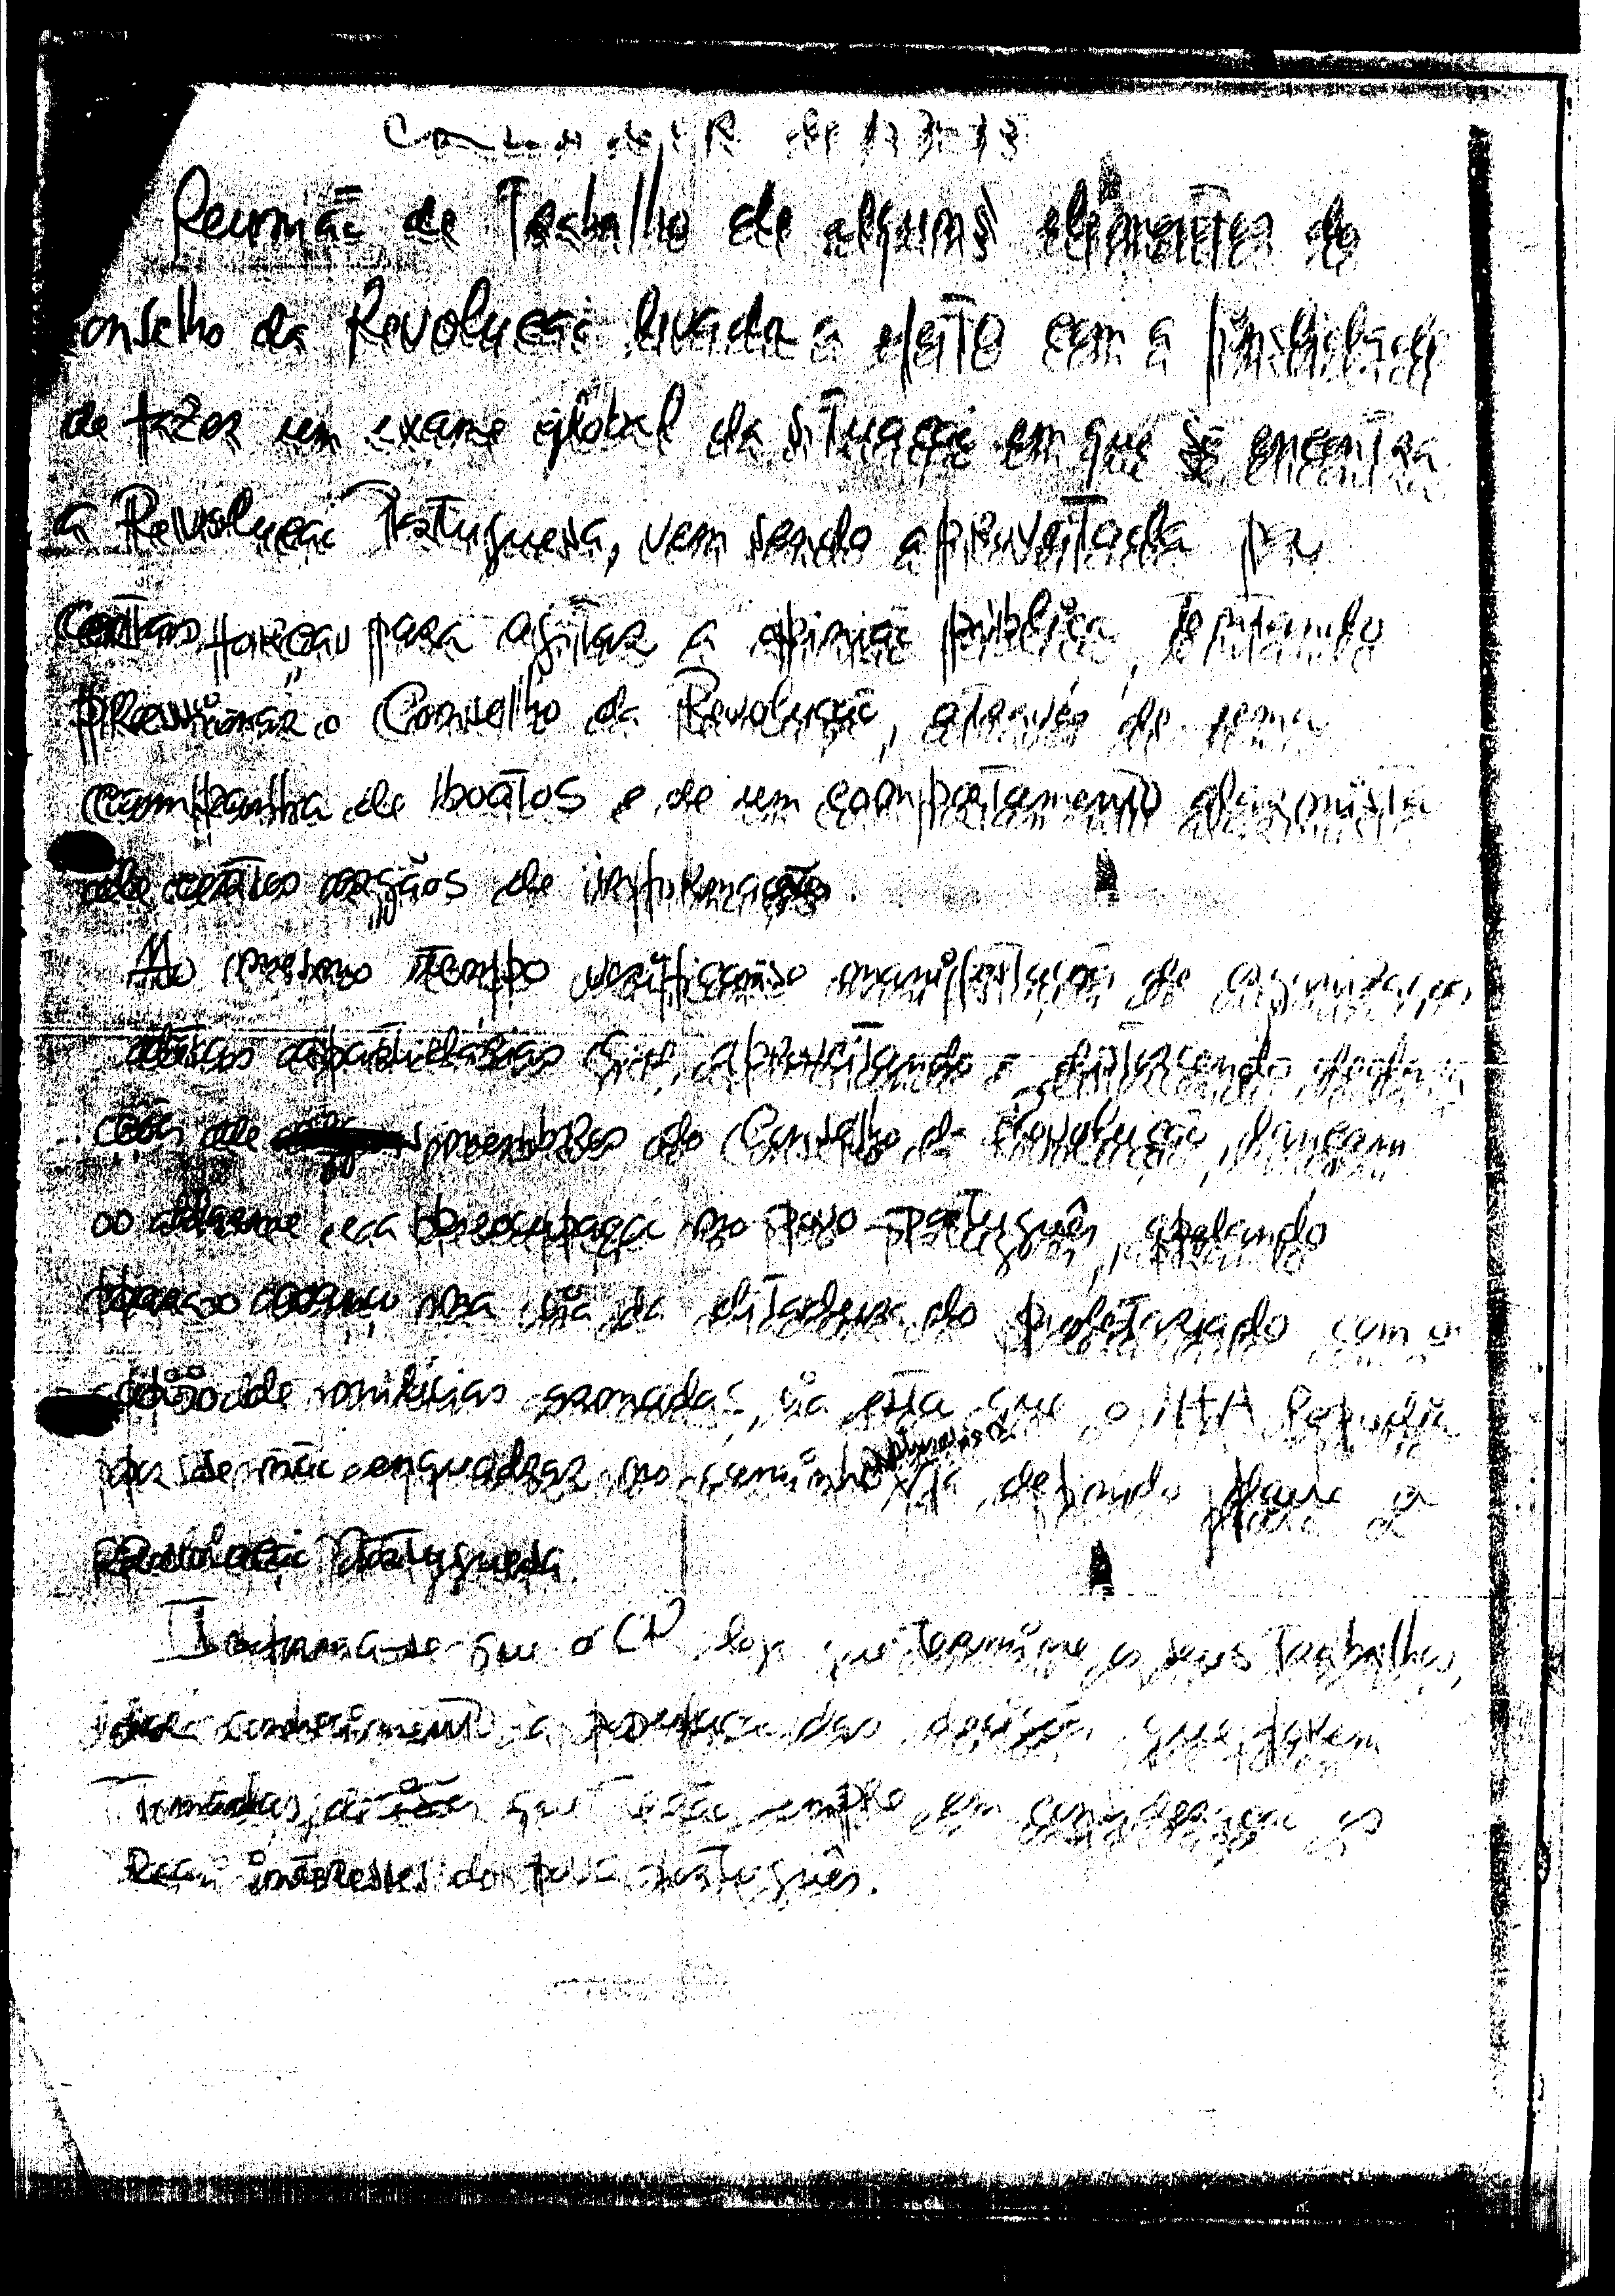 Reunião de Trabalho de alguns elementos do
onselho da Revolução levada a efeito com a finalidade
de fazer um exame global da situação em que se encontra
a Revolução Portuguesa, vem sendo aproveitada por
certas forças para agitar a opinião pública, tentando
pressionar o Conselho da Revolução, através de uma
campanha de boatos e de um comportamento alarmista
de certos orgãos de informação.
Ao mesmo tempo verificam-se manifestações de organizações
ditas apartidárias que, aproveitando e distorcendo declara
ções de membros do Conselho da Revolução, lançam
o alarme e a preocupaçã no povo português, apelando
para o avanço na via da ditadura do proletariado com a
de milícias armadas, via esta que o MFA Repudia
por se não enquadrar no caminho já definido para a
Revolução Portuguesa.
Informa-se que o CR logo que termine os seus Trabalhos,
dará conhecimento à das decisões que forem
Tomadas, decisões que terão sempre em consideração os
Reais interesses do povo português.